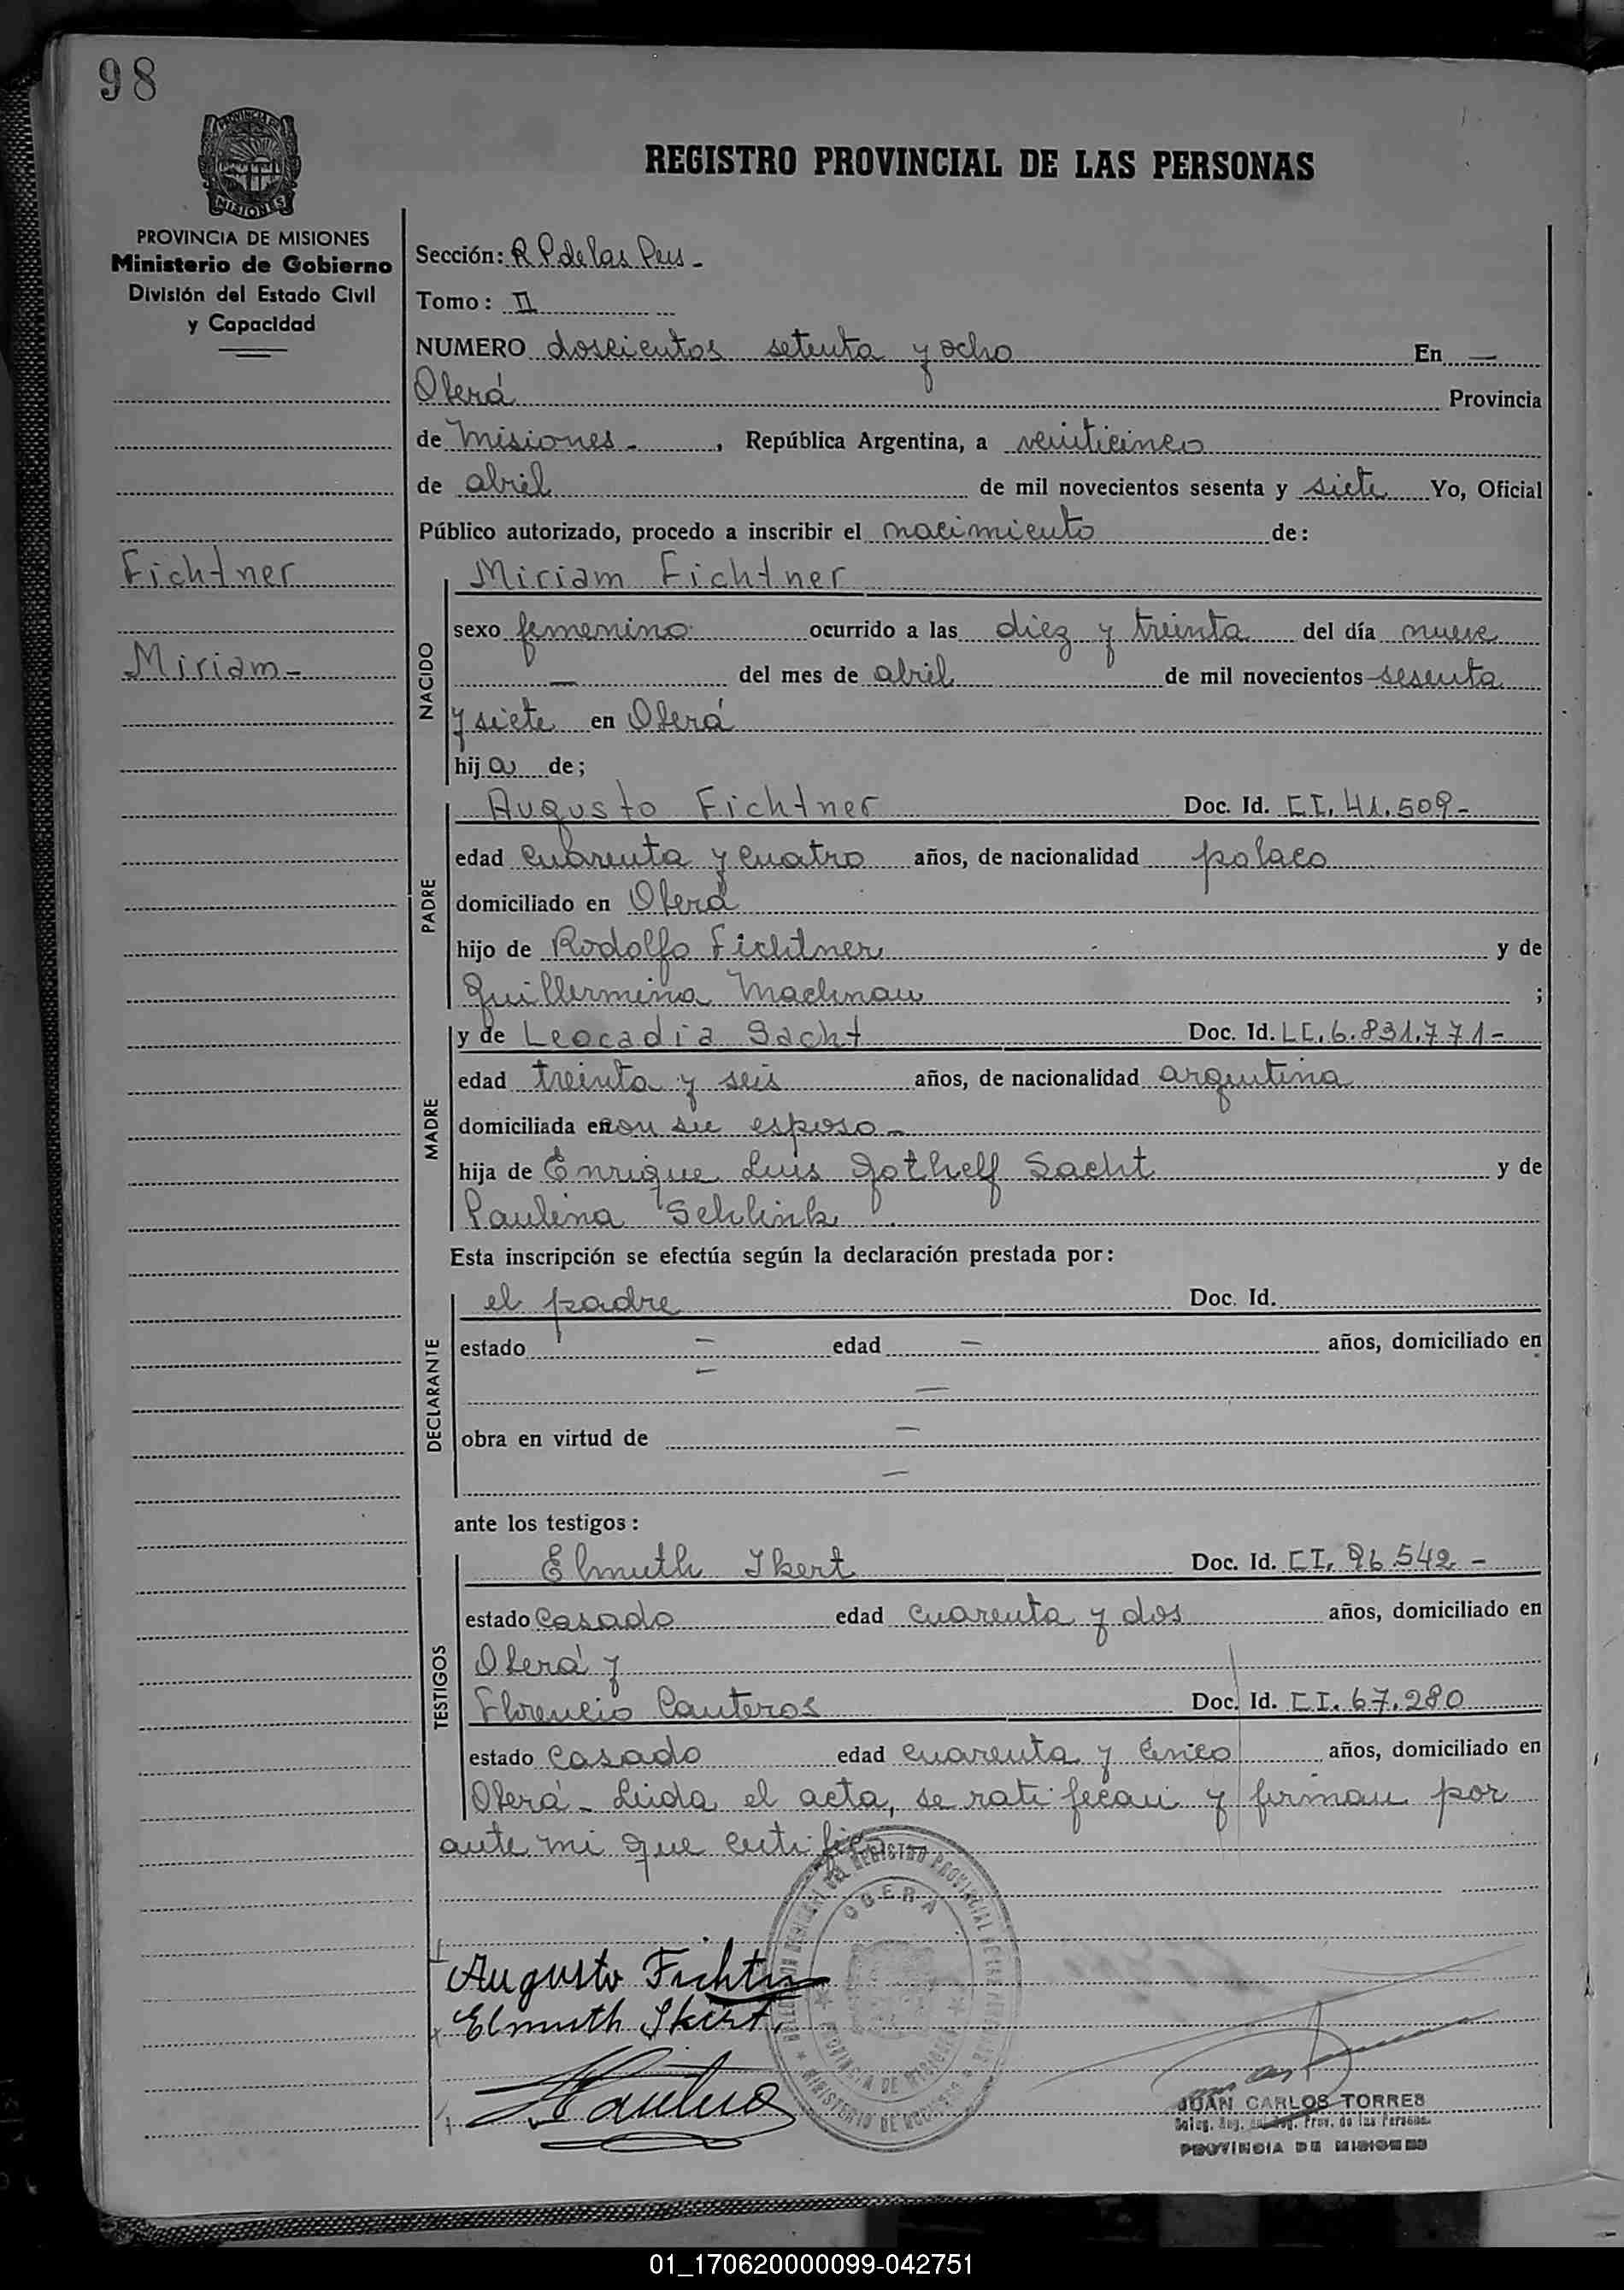 98
PROVINCIA DE MISIONES
REGISTRO PROVINCIAL DE LAS PERSONAS
PROVINCIA DE MISIONES
Ministerio de Gobierno
División del Estado Civil
y Capacidad
Fichtner
Miriam-
Sección: R P de las Pers -
Tomo: II
NUMERO doscientos setenta y ocho En —
Oberá Provincia
de Misiones - , República Argentina, a veinticinco
de abril de mil novecientos sesenta y siete Yo, Oficial
Público autorizado, procedo a inscribir el nacimiento de:
NACIDO
Miriam Fichtner
sexo femenino ocurrido a las diez y treinta del día nueve
— del mes de abril de mil novecientos sesenta
y siete en Oberá
hija de;
PADRE
Augusto Fichtner Doc. Id. CI. 41.509-
edad cuarenta y cuatro años, de nacionalidad polaco
domiciliado en Oberá
hijo de Rodolfo Fichtner y de
Guillermina Machnau ;
MADRE
y de Leocadia Sacht Doc. Id. LC. 6.831.771-
edad treinta y seis años, de nacionalidad argentina
domiciliada en con su esposo -
hija de Enrique Luis Gothelf Sacht y de
Paulina Schlink
Esta inscripción se efectúa según la declaración prestada por:
DECLARANTE
el padre Doc. Id.
estado — edad — años, domiciliado en
— —
obra en virtud de —
—
ante los testigos:
TESTIGOS
Elmuth Ikert Doc. Id. CI. 96.542 -
estado casado edad cuarenta y dos años, domiciliado en
Oberá y
Florencio Canteros Doc. Id. CI. 67.280
estado casado edad cuarenta y cinco años, domiciliado en
Oberá - Leida el acta, se ratifican y firman por
ante mi que certifico
OBERA
PROVINCIA DE MISIONES
Augusto Fichtner
Elmuth Ikert.
JUAN CARLOS TORRES
Prov. de las Personas
PROVINCIA DE MISIONES
01_170620000099-042751